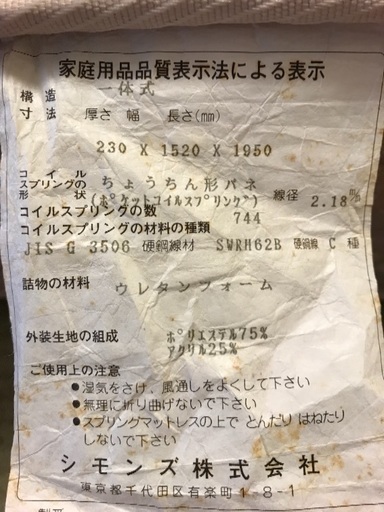 家庭用品品質表示法による表示
構造 一体式
寸法 厚さ 幅 長さ(mm)
230 X 1520 X 1950
コイルスプリングの形状 ちょうちん形バネ (ポケットコイルスプリング) 線径 2.18mm
コイルスプリングの数 744
コイルスプリングの材料の種類
JIS G 3506 硬鋼線材 SWRH62B 硬鋼線 C 種
詰物の材料 ウレタンフォーム
外装生地の組成 ポリエステル75%
アクリル25%
ご使用上の注意
●湿気をさけ、風通しをよくして下さい
●無理に折り曲げないで下さい
●スプリングマットレスの上で とんだり はねたり
しないで下さい
シモンズ株式会社
東京都千代田区有楽町1-8-1